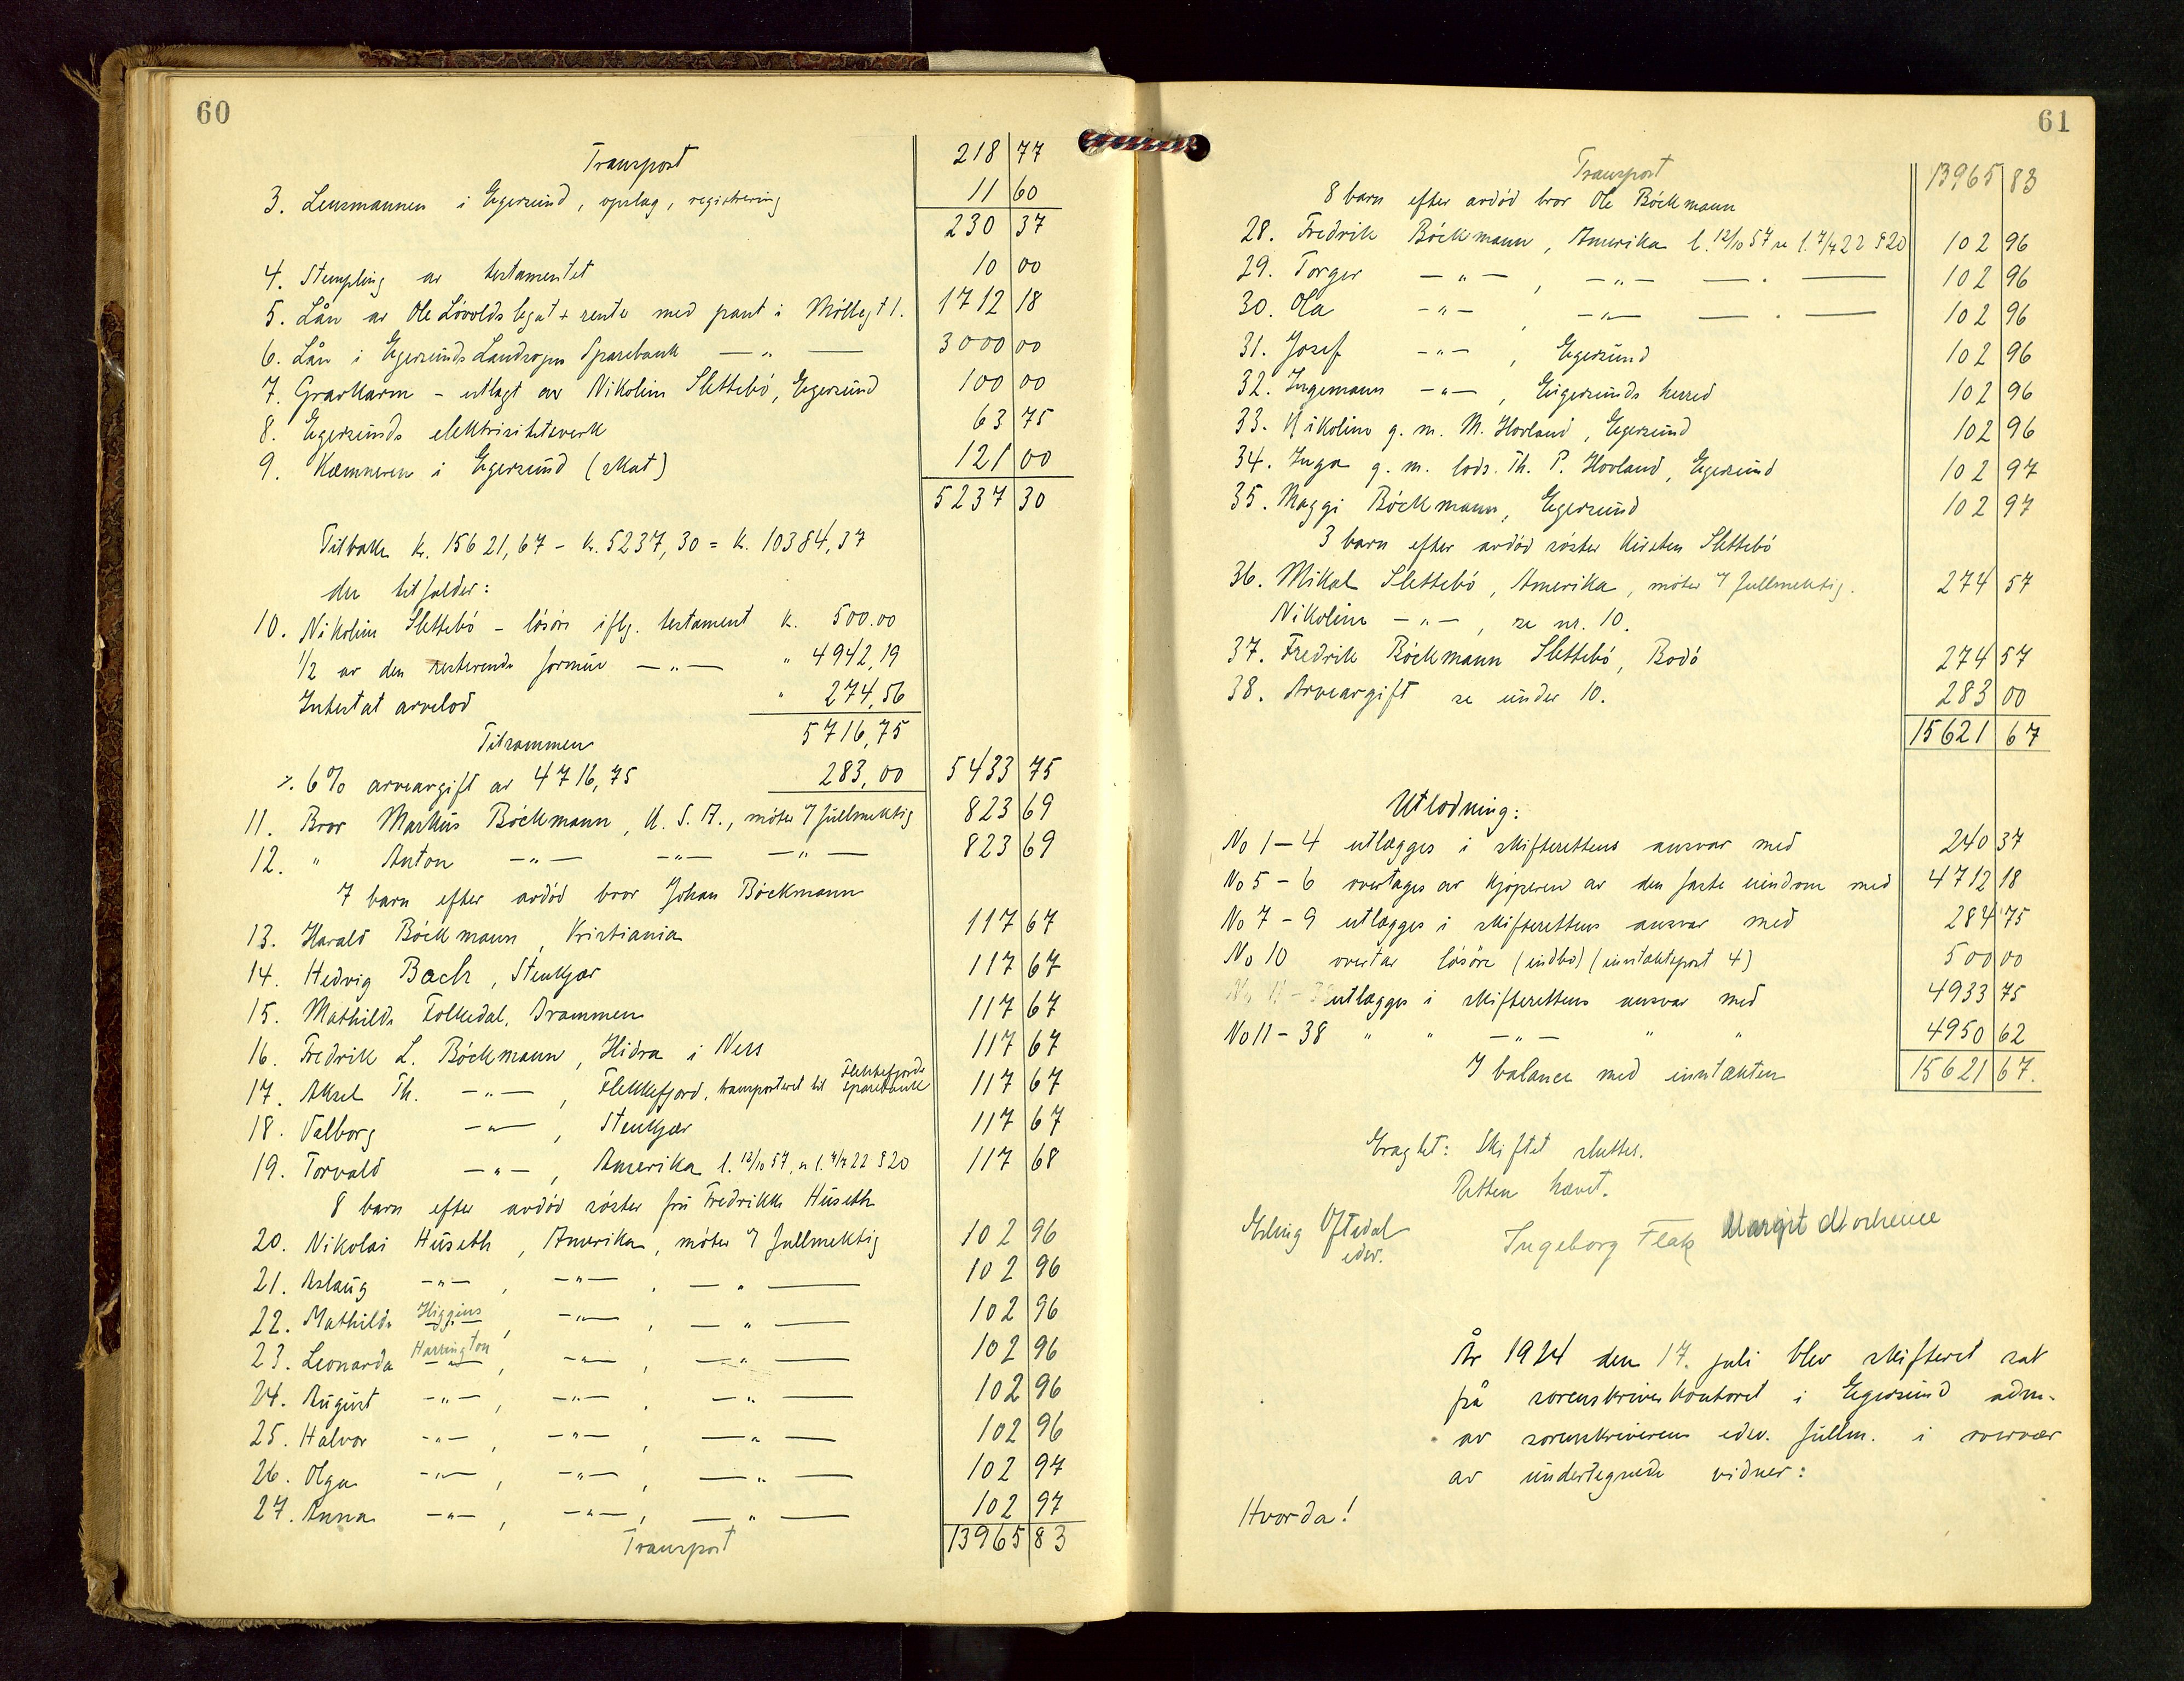 60
Transport 218 77
3. Lensmannen i Egersund, opslag, registrering 11 60
230 37
4. Stempling av testamentet 10 00
5. Lån av Ole Løvolds legat + rente med pant i Møllegt 1. 1712 18
6. Lån i Egersunds Landsogns Sparebank — " — 3000 00
7. Gravkarm - utlagt av Nikoline Slettebö, Egersund 100 00
8. Egersunds elektrisitetsverk 63 75
9. Kæmneren i Egersund (skat) 121 00
5237 30
Tilbake kr. 15621,67 - kr. 5237,30 = kr. 10384,37
der tilfalder:
10. Nikoline Slettebö - lösöre iflg. testament kr. 500.00
1/2 av den resterende formue — " — " 4942,19
Intestat arvelod " 274,56
Tilsammen 5716,75
÷ 6% arveavgift av 4716,75 283,00 5433 75
11. Bror Markus Böckmann, U.S.A., möter v/ fullmektig 823 69
12. " Anton — " — — " — — " — 823 69
7 barn efter avdöd bror Johan Böckmann
13. Harald Böckmann, Kristiania 117 67
14. Hedvig Bach, Stenkjær 117 67
15. Mathilde Folkedal, Drammen 117 67
16. Fredrik L. Böckmann, Hidra i Ness 117 67
17. Aksel Th. — " — , Flekkefjord, transporteret til Flekkefjords Sparebank 117 67
18. Valborg — " — , Stenkjær 117 67
19. Torvald — " — , Amerika l. 12/10 57, se l. 7/4 22 § 20 117 68
8 barn efter avdöd söster fru Fredrikke Huseth
20. Nikolai Huseth, Amerika, möter v/ fullmektig 102 96
21. Aslaug — " — , — " — , — " — 102 96
22. Mathilde Higgins — " — , — " — , — " — 102 96
23. Leonarda Harrington — " — , — " — , — " — 102 96
24. August — " — , — " — , — " — 102 96
25. Halvor — " — , — " — , — " — 102 96
26. Olga — " — , — " — , — " — 102 97
27. Anna — " — , — " — , — " — 102 97
Transport 13965 83
61
Transport 13965 83
8 barn efter avdöd bror Ole Böckmann
28. Fredrik Böckmann, Amerika l. 12/10 57 se l. 7/4 22 § 20 102 96
29. Torger — " — , — " — — . — 102 96
30. Ola — " — , — " — — . — 102 96
31. Josef — " — , Egersund 102 96
32. Ingemann — " — , Eigersunds herred 102 96
33. Nikoline g. m. M. Hovland, Egersund 102 96
34. Inga g. m. lods. Th. P. Hovland, Egersund 102 97
35. Maggi Böckmann, Egersund 102 97
3 barn efter avdöd söster Kirsten Slettebö
36. Mikal Slettebö, Amerika, möter v/ fullmektig. 274 57
Nikoline — " — , se nr. 10.
37. Fredrik Böckmann Slettebö, Bodö 274 57
38. Arveavgift se under 10. 283 00
15621 67
Utlodning:
No 1 - 4 utlægges i skifterettens ansvar med 240 37
No 5 - 6 overtages av kjøperen av den faste eiendom med 4712 18
No 7 - 9 utlægges i skifterettens ansvar med 284 75
No 10 overtar lösöre (indbo) (inntæktspost 4) 500 00
utlægges i skifterettens ansvar med 4933 75
No 11 - 38 " " — " — " " 4950 62
I balance med inntækten 15621 67.
Eragtet: Skiftet sluttes.
Retten hævet.
Erling Oftedal
edsv.
Ingeborg Flak Margit
År 1924 den 17. juli blev skifteret sat
på sorenskriverkontoret i Egersund adm.
av sorenskriverens edsv. fullm. i overvær
av undertegnede vidner:
Hvorda!